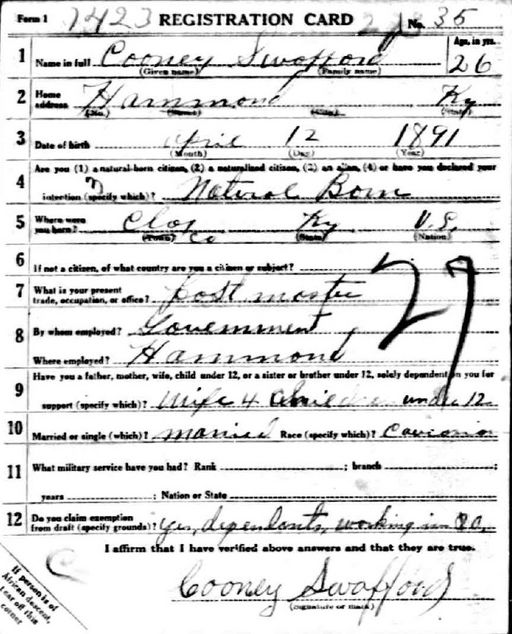 Form 1 7423 REGISTRATION CARD No. 35
1 Name in full Cooney Swafford Age, in yrs.
(Given name) (Family name) 26
2 Home address Hammond Ky
(No.) (Street) (City) (State)
3 Date of birth April 12 1891
(Month) (Day) (Year)
4 Are you (1) a natural-born citizen, (2) a naturalized citizen, (3) an alien, (4) or have you declared your
intention (specify which)? Natural Born
5 Where were you born? Clay Co Ky U.S.
(Town) (State) (Nation)
6 If not a citizen, of what country are you a citizen or subject?
7 What is your present trade, occupation, or office? Post master
8 By whom employed? Government
Where employed? Hammond
27
9 Have you a father, mother, wife, child under 12, or a sister or brother under 12, solely dependent on you for
support (specify which)? Wife 4 Children under 12
10 Married or single (which)? Married Race (specify which)?
11 What military service have you had? Rank ; branch ;
years ; Nation or State
12 Do you claim exemption from draft (specify grounds)? Yes, dependants, working in P.O.
I affirm that I have verified above answers and that they are true.
Cooney Swafford
(Signature or mark)
If person is of
African descent,
tear off this
corner